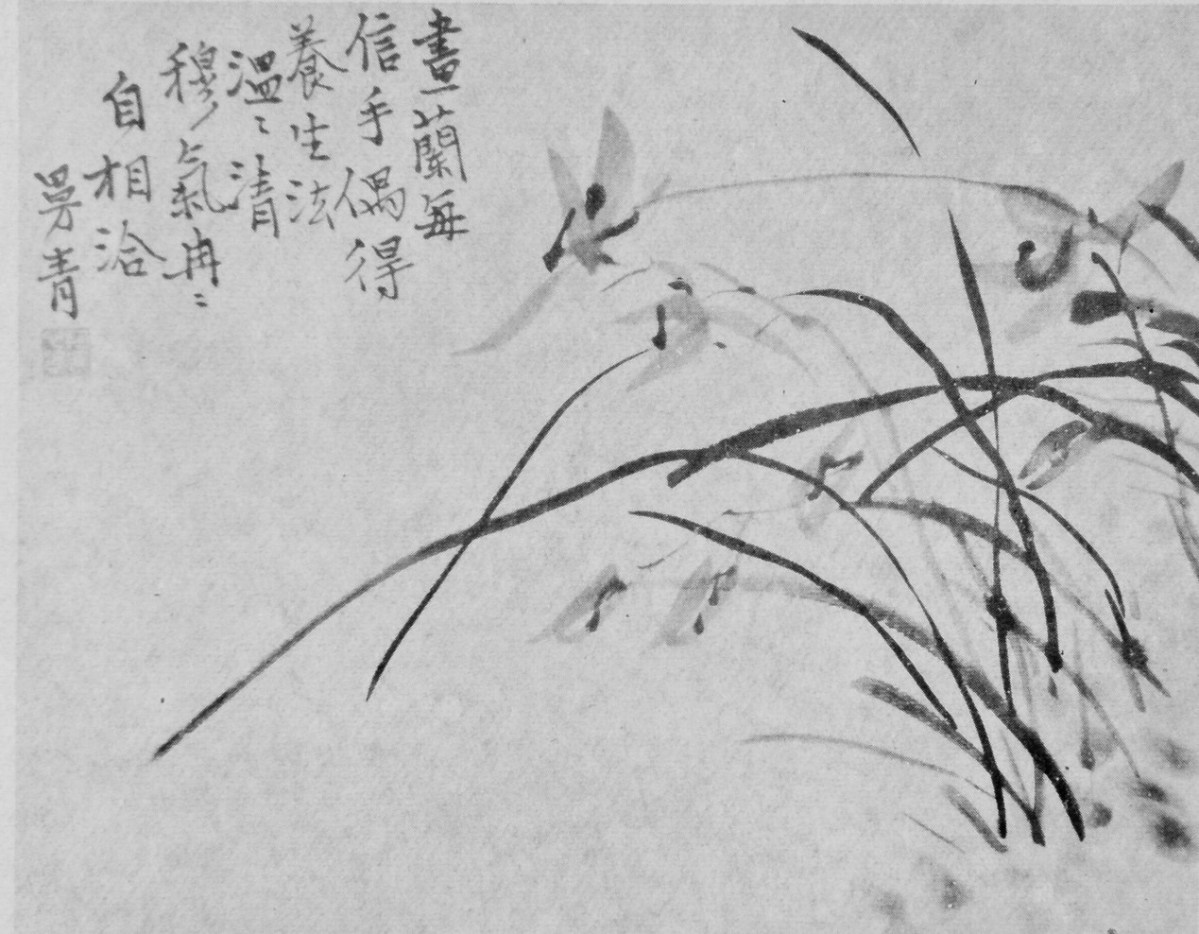 畫蘭每
信手偶得
養生法
溫〻清
穆氣冉〻
自相洽
曼青